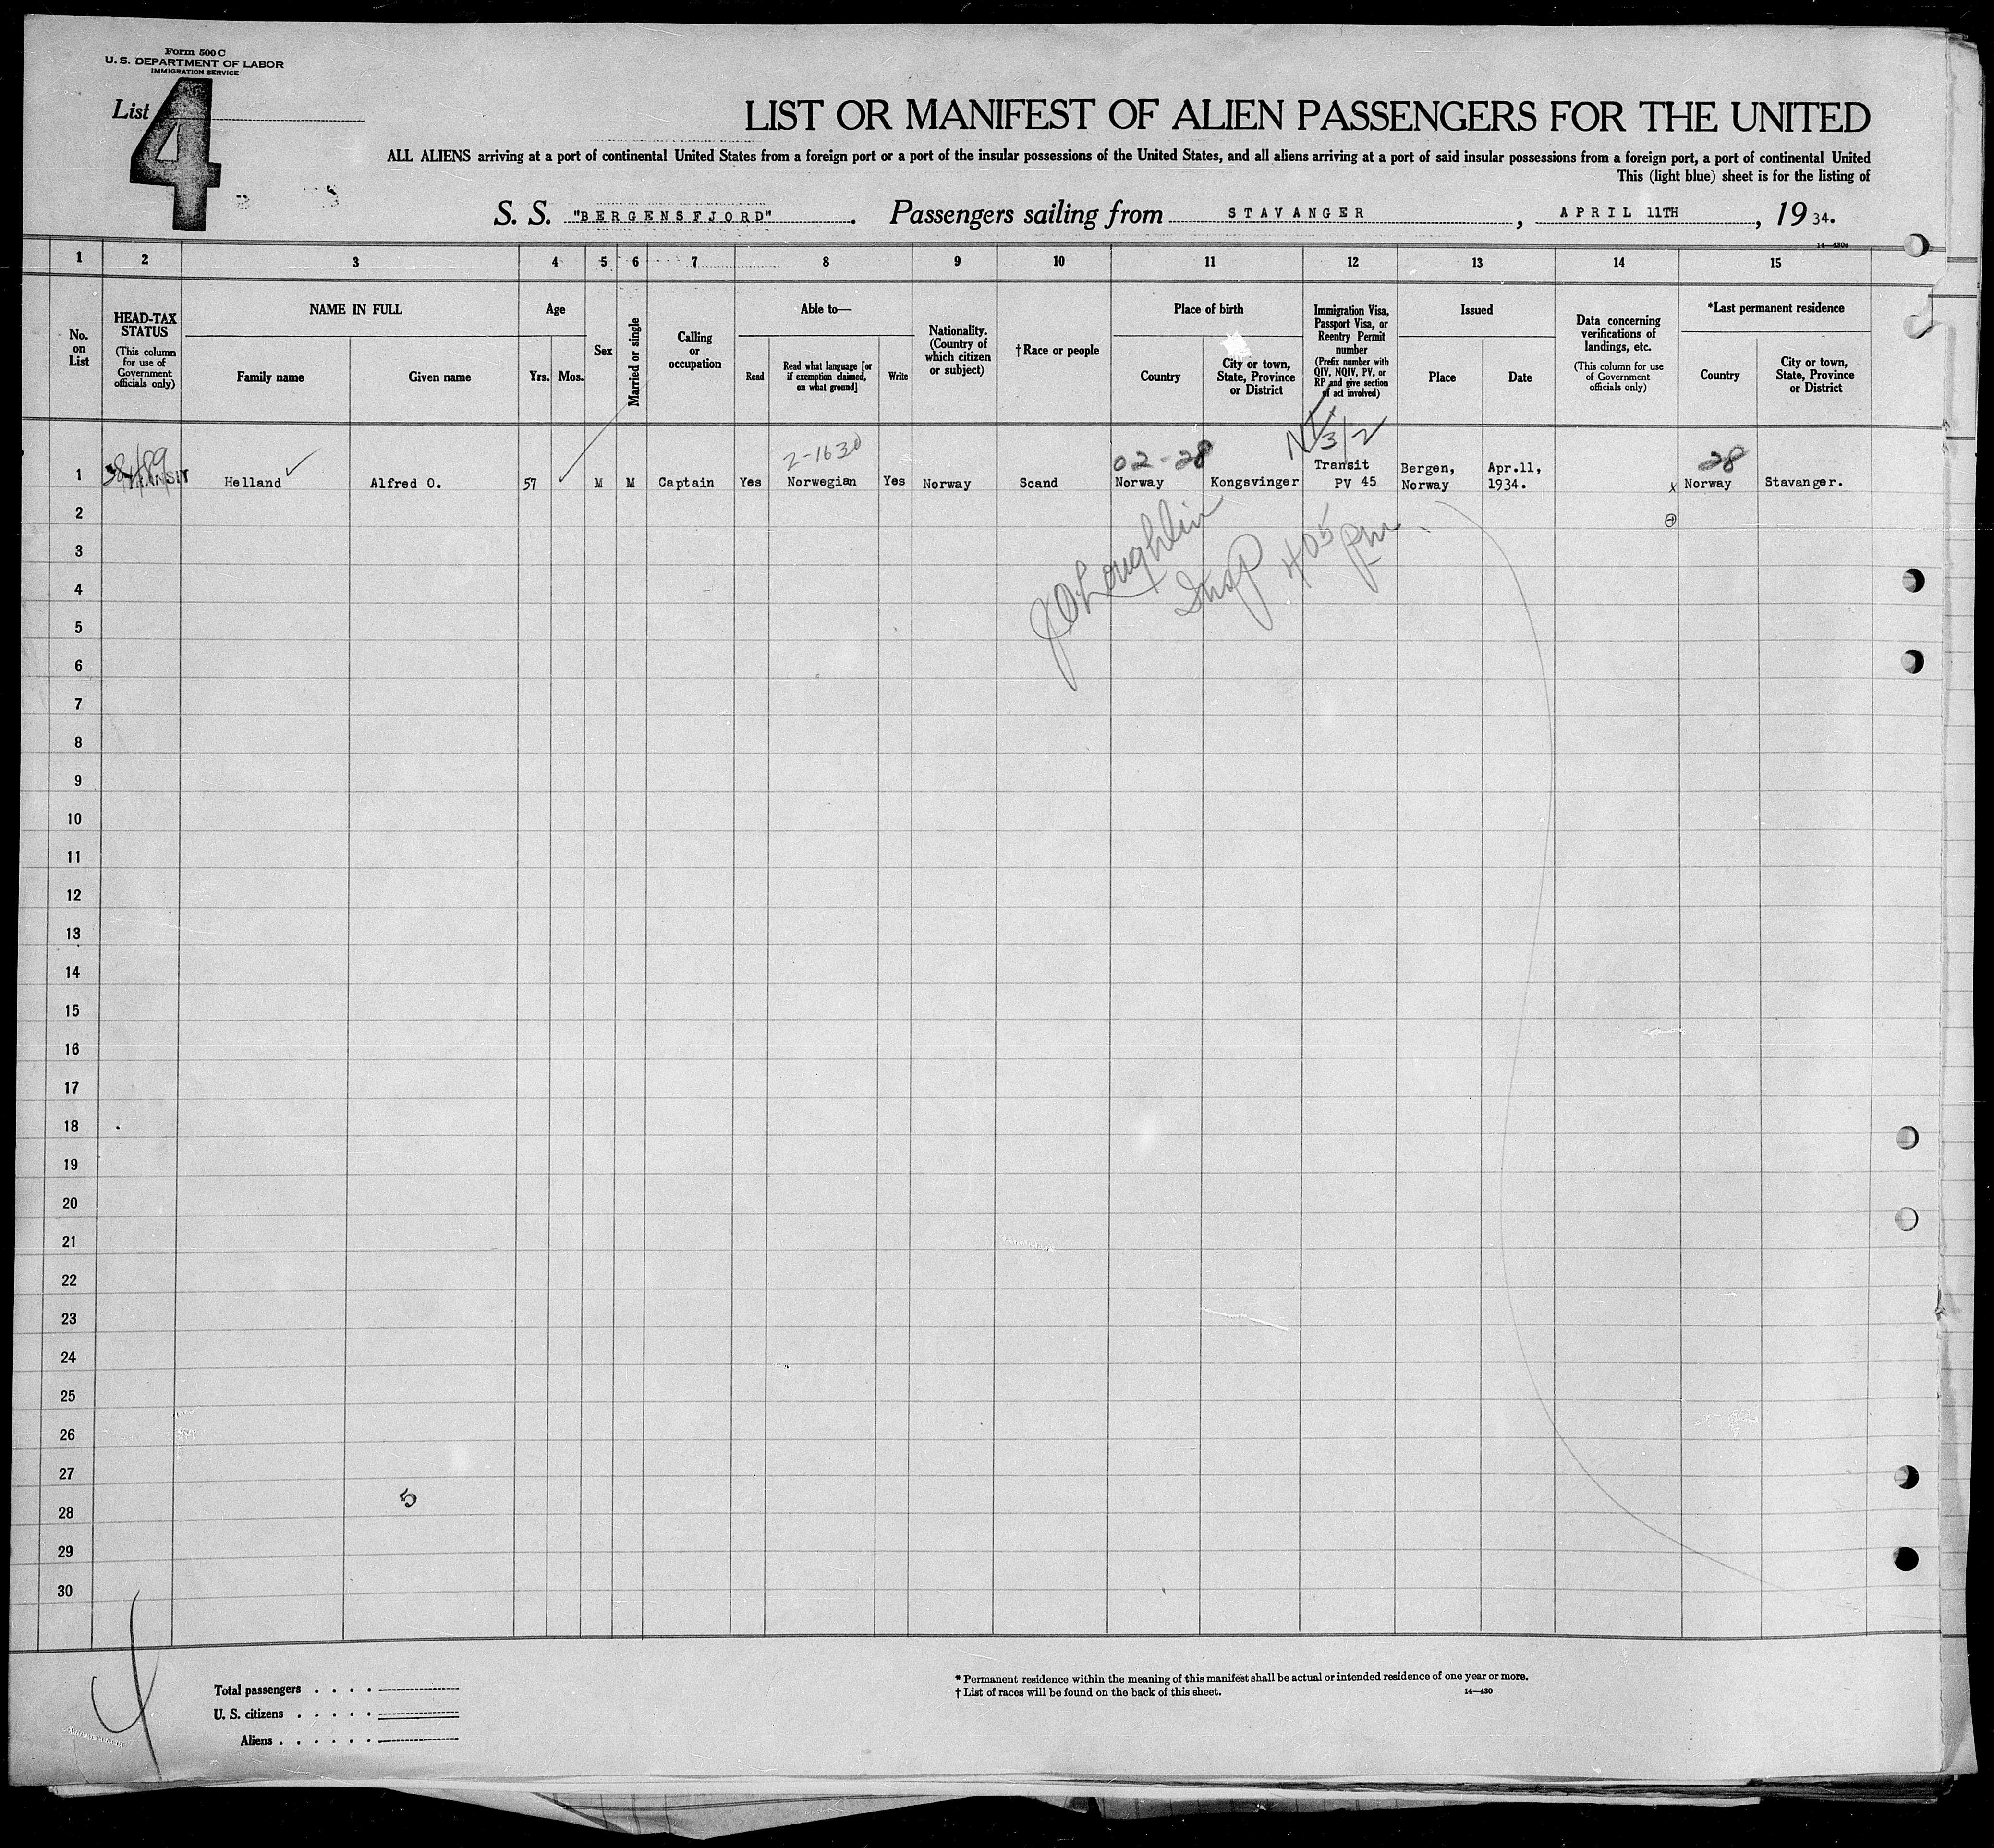 Form 500 C
U. S. DEPARTMENT OF LABOR
IMMIGRATION SERVICE
List 4
LIST OR MANIFEST OF ALIEN PASSENGERS FOR THE UNITED
ALL ALIENS arriving at a port of continental United States from a foreign port or a port of the insular possessions of the United States, and all aliens arriving at a port of said insular possessions from a foreign port, a port of continental United
This (light blue) sheet is for the listing of
S. S. "BERGENSFJORD". Passengers sailing from STAVANGER, APRIL 11TH, 1934.
14—430a
1 2 3 4 5 6 7 8 9 10 11 12 13 14 15
No. on List
HEAD-TAX STATUS
(This column for use of Government officials only)
NAME IN FULL
Family name
Given name
Age
Yrs. Mos.
Sex
Married or single
Calling or occupation
Able to—
Read
Read what language [or if exemption claimed, on what ground]
Write
Nationality. (Country of which citizen or subject)
† Race or people
Place of birth
Country
City or town, State, Province or District
Immigration Visa, Passport Visa, or Reentry Permit number
(Prefix number with QIV, NQIV, PV, or RP and give section of act involved)
Issued
Place
Date
Data concerning verifications of landings, etc.
(This column for use of Government officials only)
*Last permanent residence
Country
City or town, State, Province or District
2-1630
02-28
3/2
28
1 TRANSIT Helland Alfred O. 57 M M Captain Yes Norwegian Yes Norway Scand Norway Kongsvinger Transit PV 45 Bergen, Norway Apr.11, 1934. x Norway Stavanger.
J O'Loughlin
Insp 405 pm
2
3
4
5
6
7
8
9
10
11
12
13
14
15
16
17
18
19
20
21
22
23
24
25
26
27
5
28
29
30
Total passengers
U. S. citizens
Aliens
* Permanent residence within the meaning of this manifest shall be actual or intended residence of one year or more.
† List of races will be found on the back of this sheet.
14—430